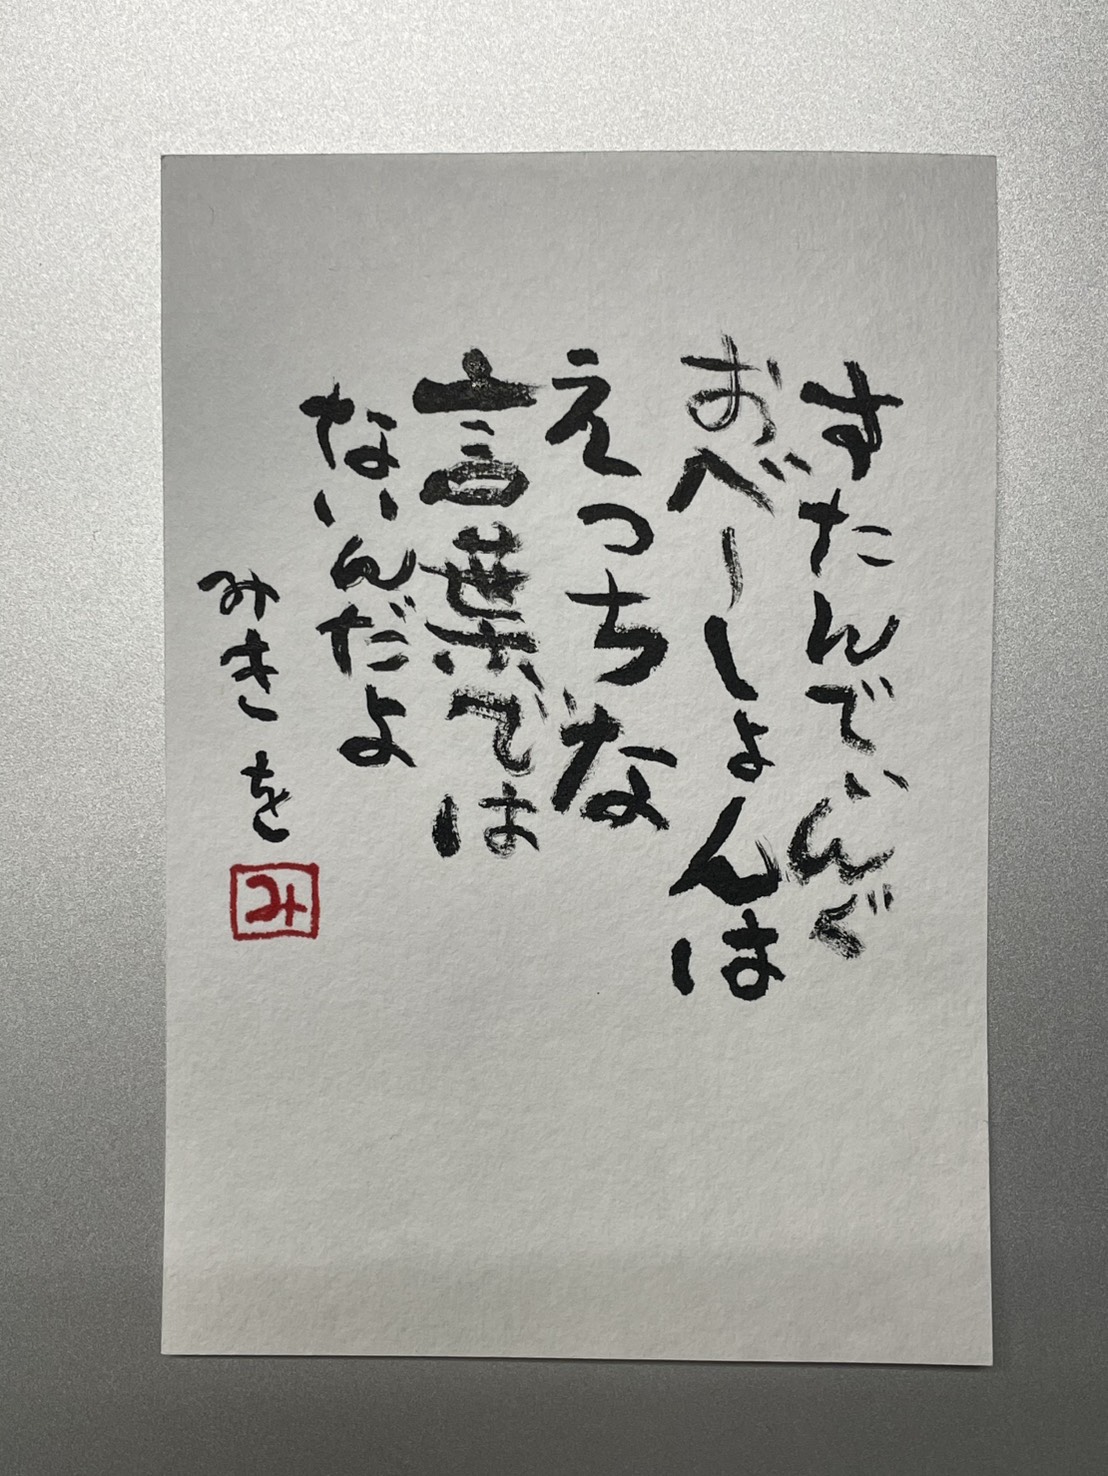 すたんでぃんぐ
おべーしょんは
えっちな
言葉では
ないんだよ
みきを
み